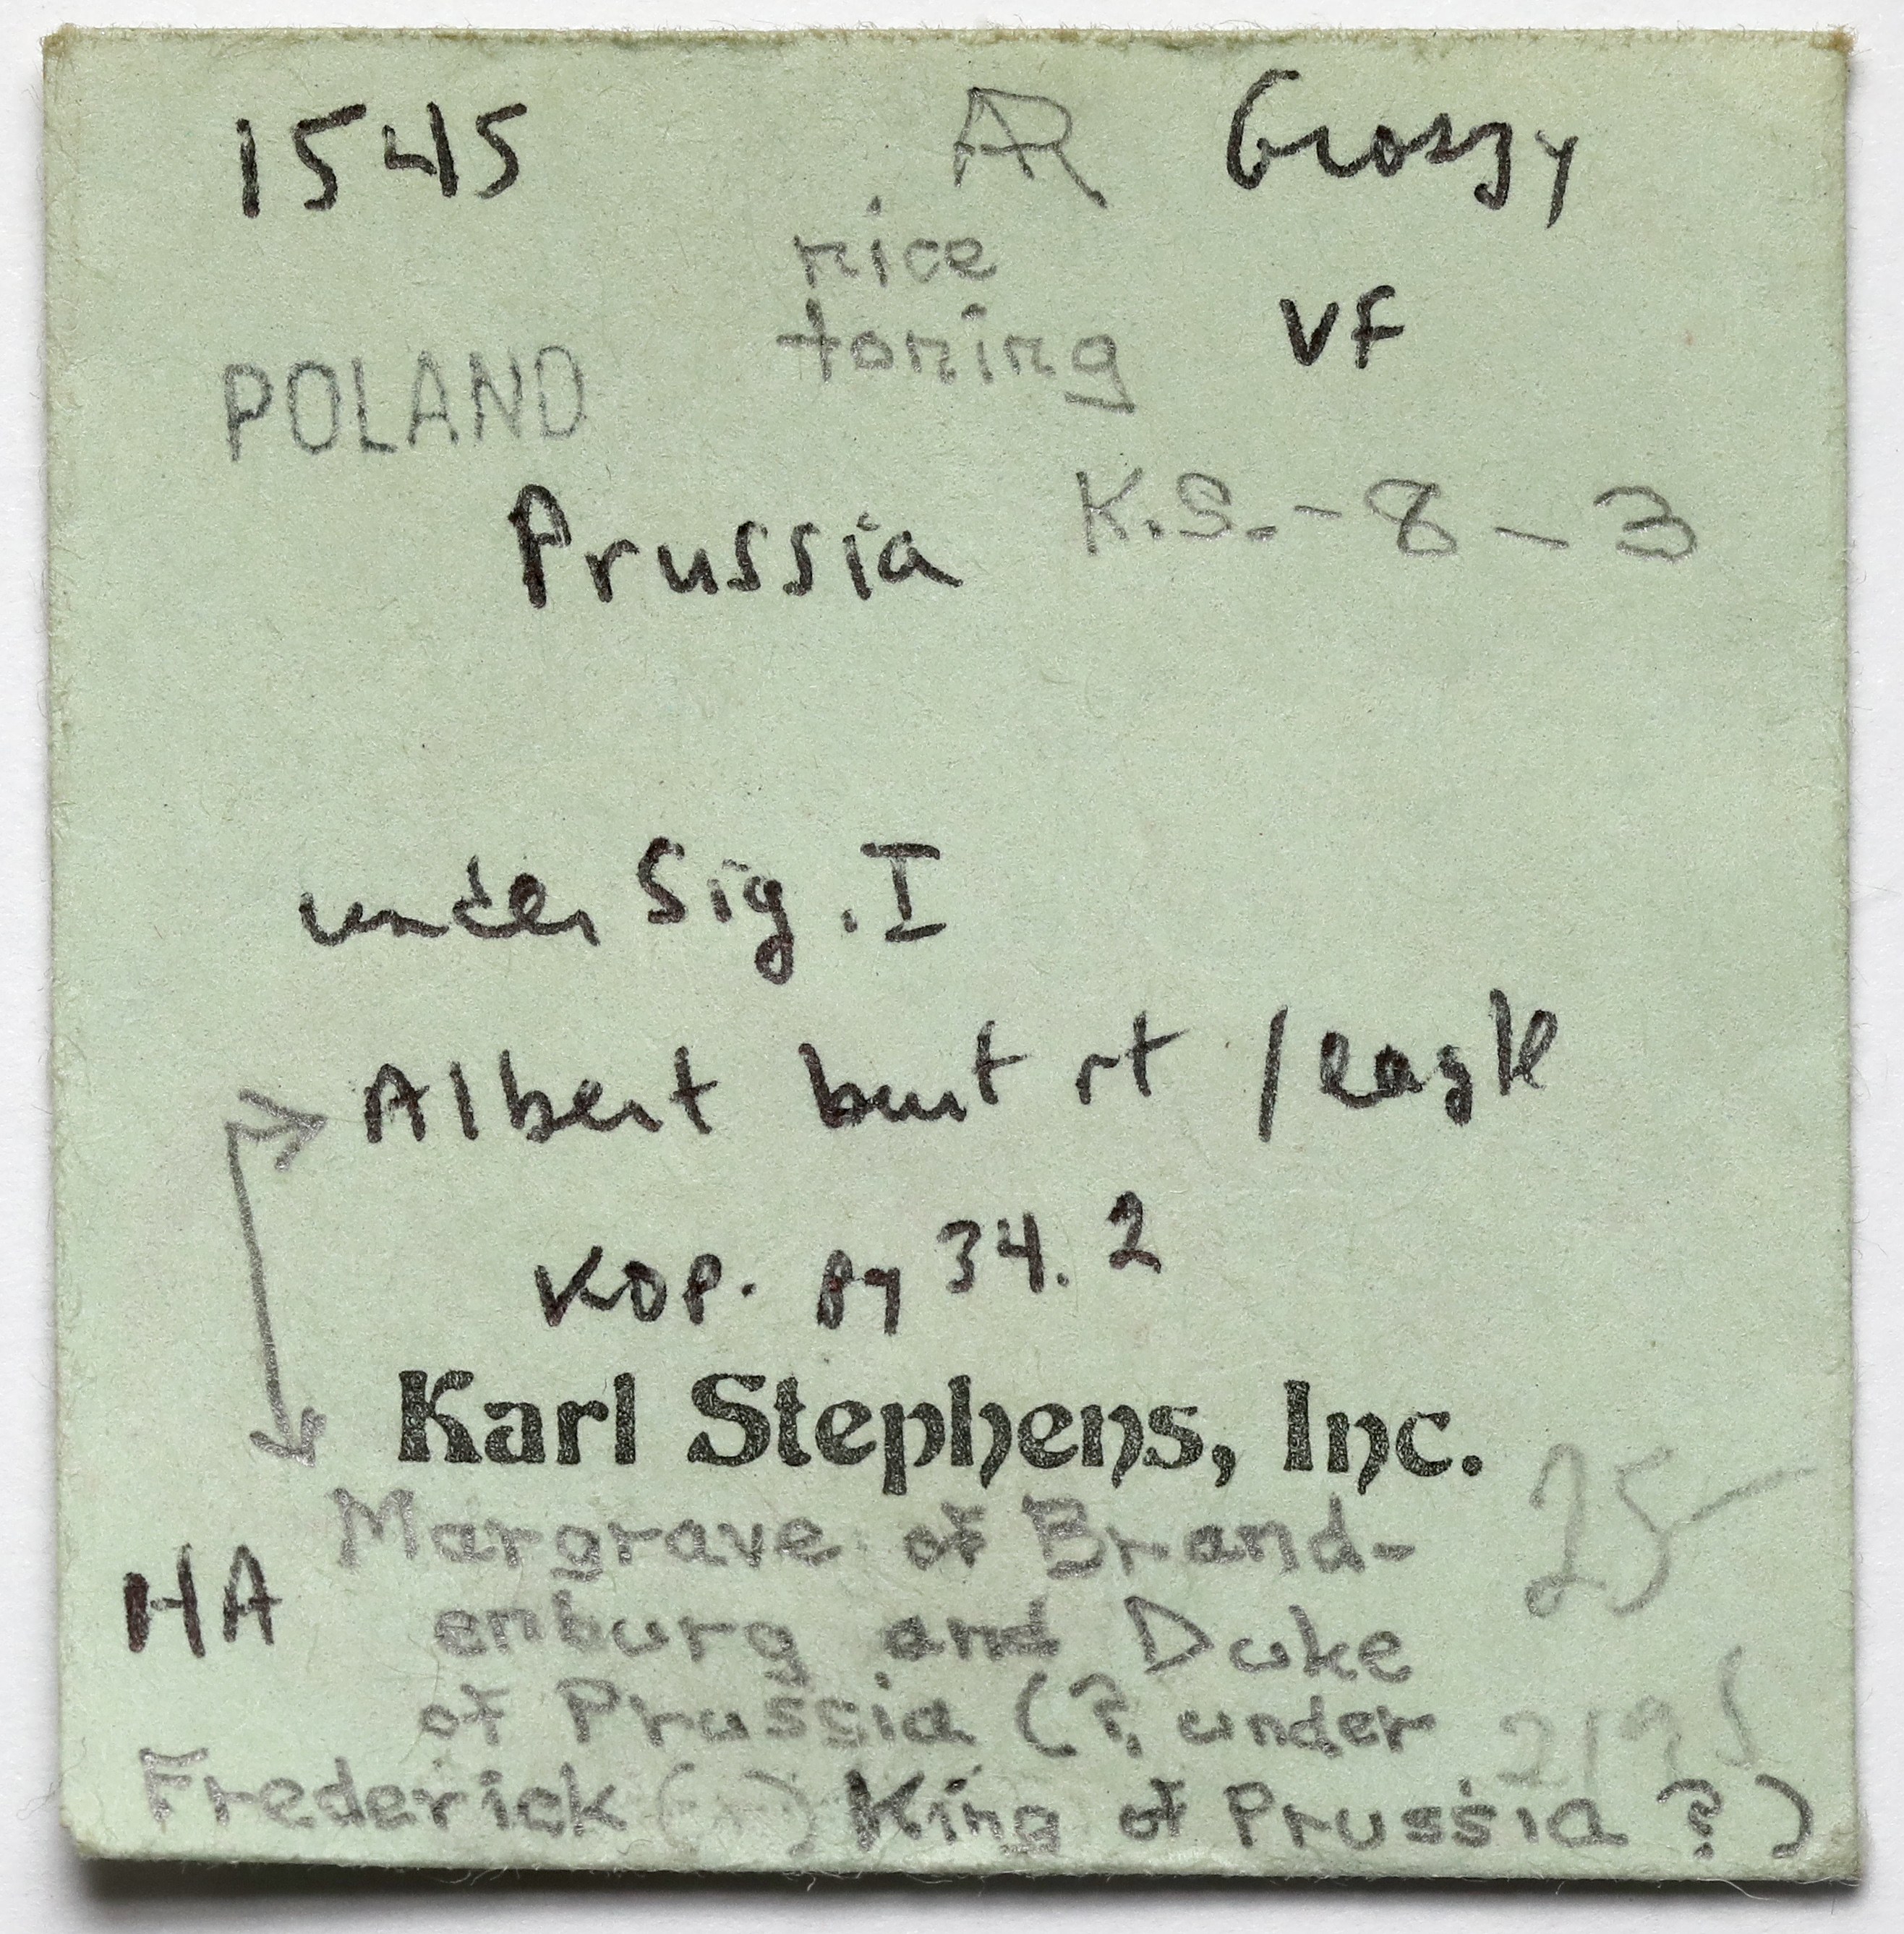 1545 AR Groszy
nice
toning VF
POLAND
Prussia K.S.-8-3
under Sig. I
Albert bust rt / eagle
KOP. pg 34.2
Karl Stephens, Inc.
25-
Margrave of Brand-
HA enburg and Duke
of Prussia (? under
Frederick ( ) King of Prussia ?)